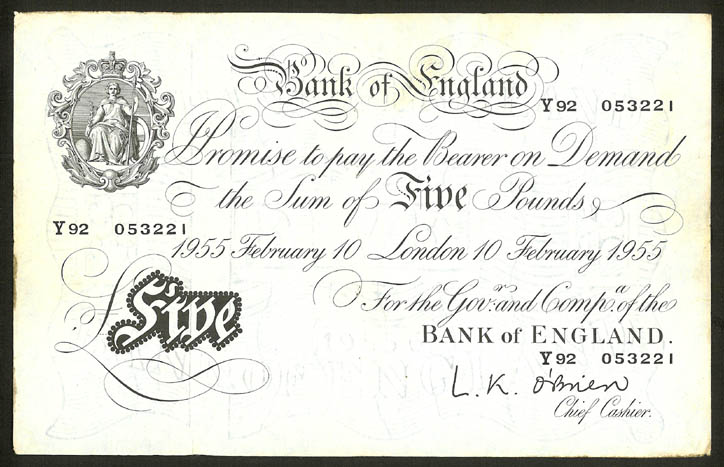 Bank of England
Y92 053221
Promise to pay the Bearer on Demand
the Sum of Five Pounds
Y92 053221
1955 February 10 London 10 February 1955
For the Govr. and Compa. of the
BANK of ENGLAND.
Five
Y92 053221
L. K. O'Brien
Chief Cashier.